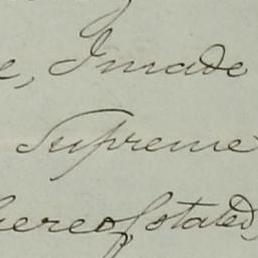 I made
Supreme
hereof stated,